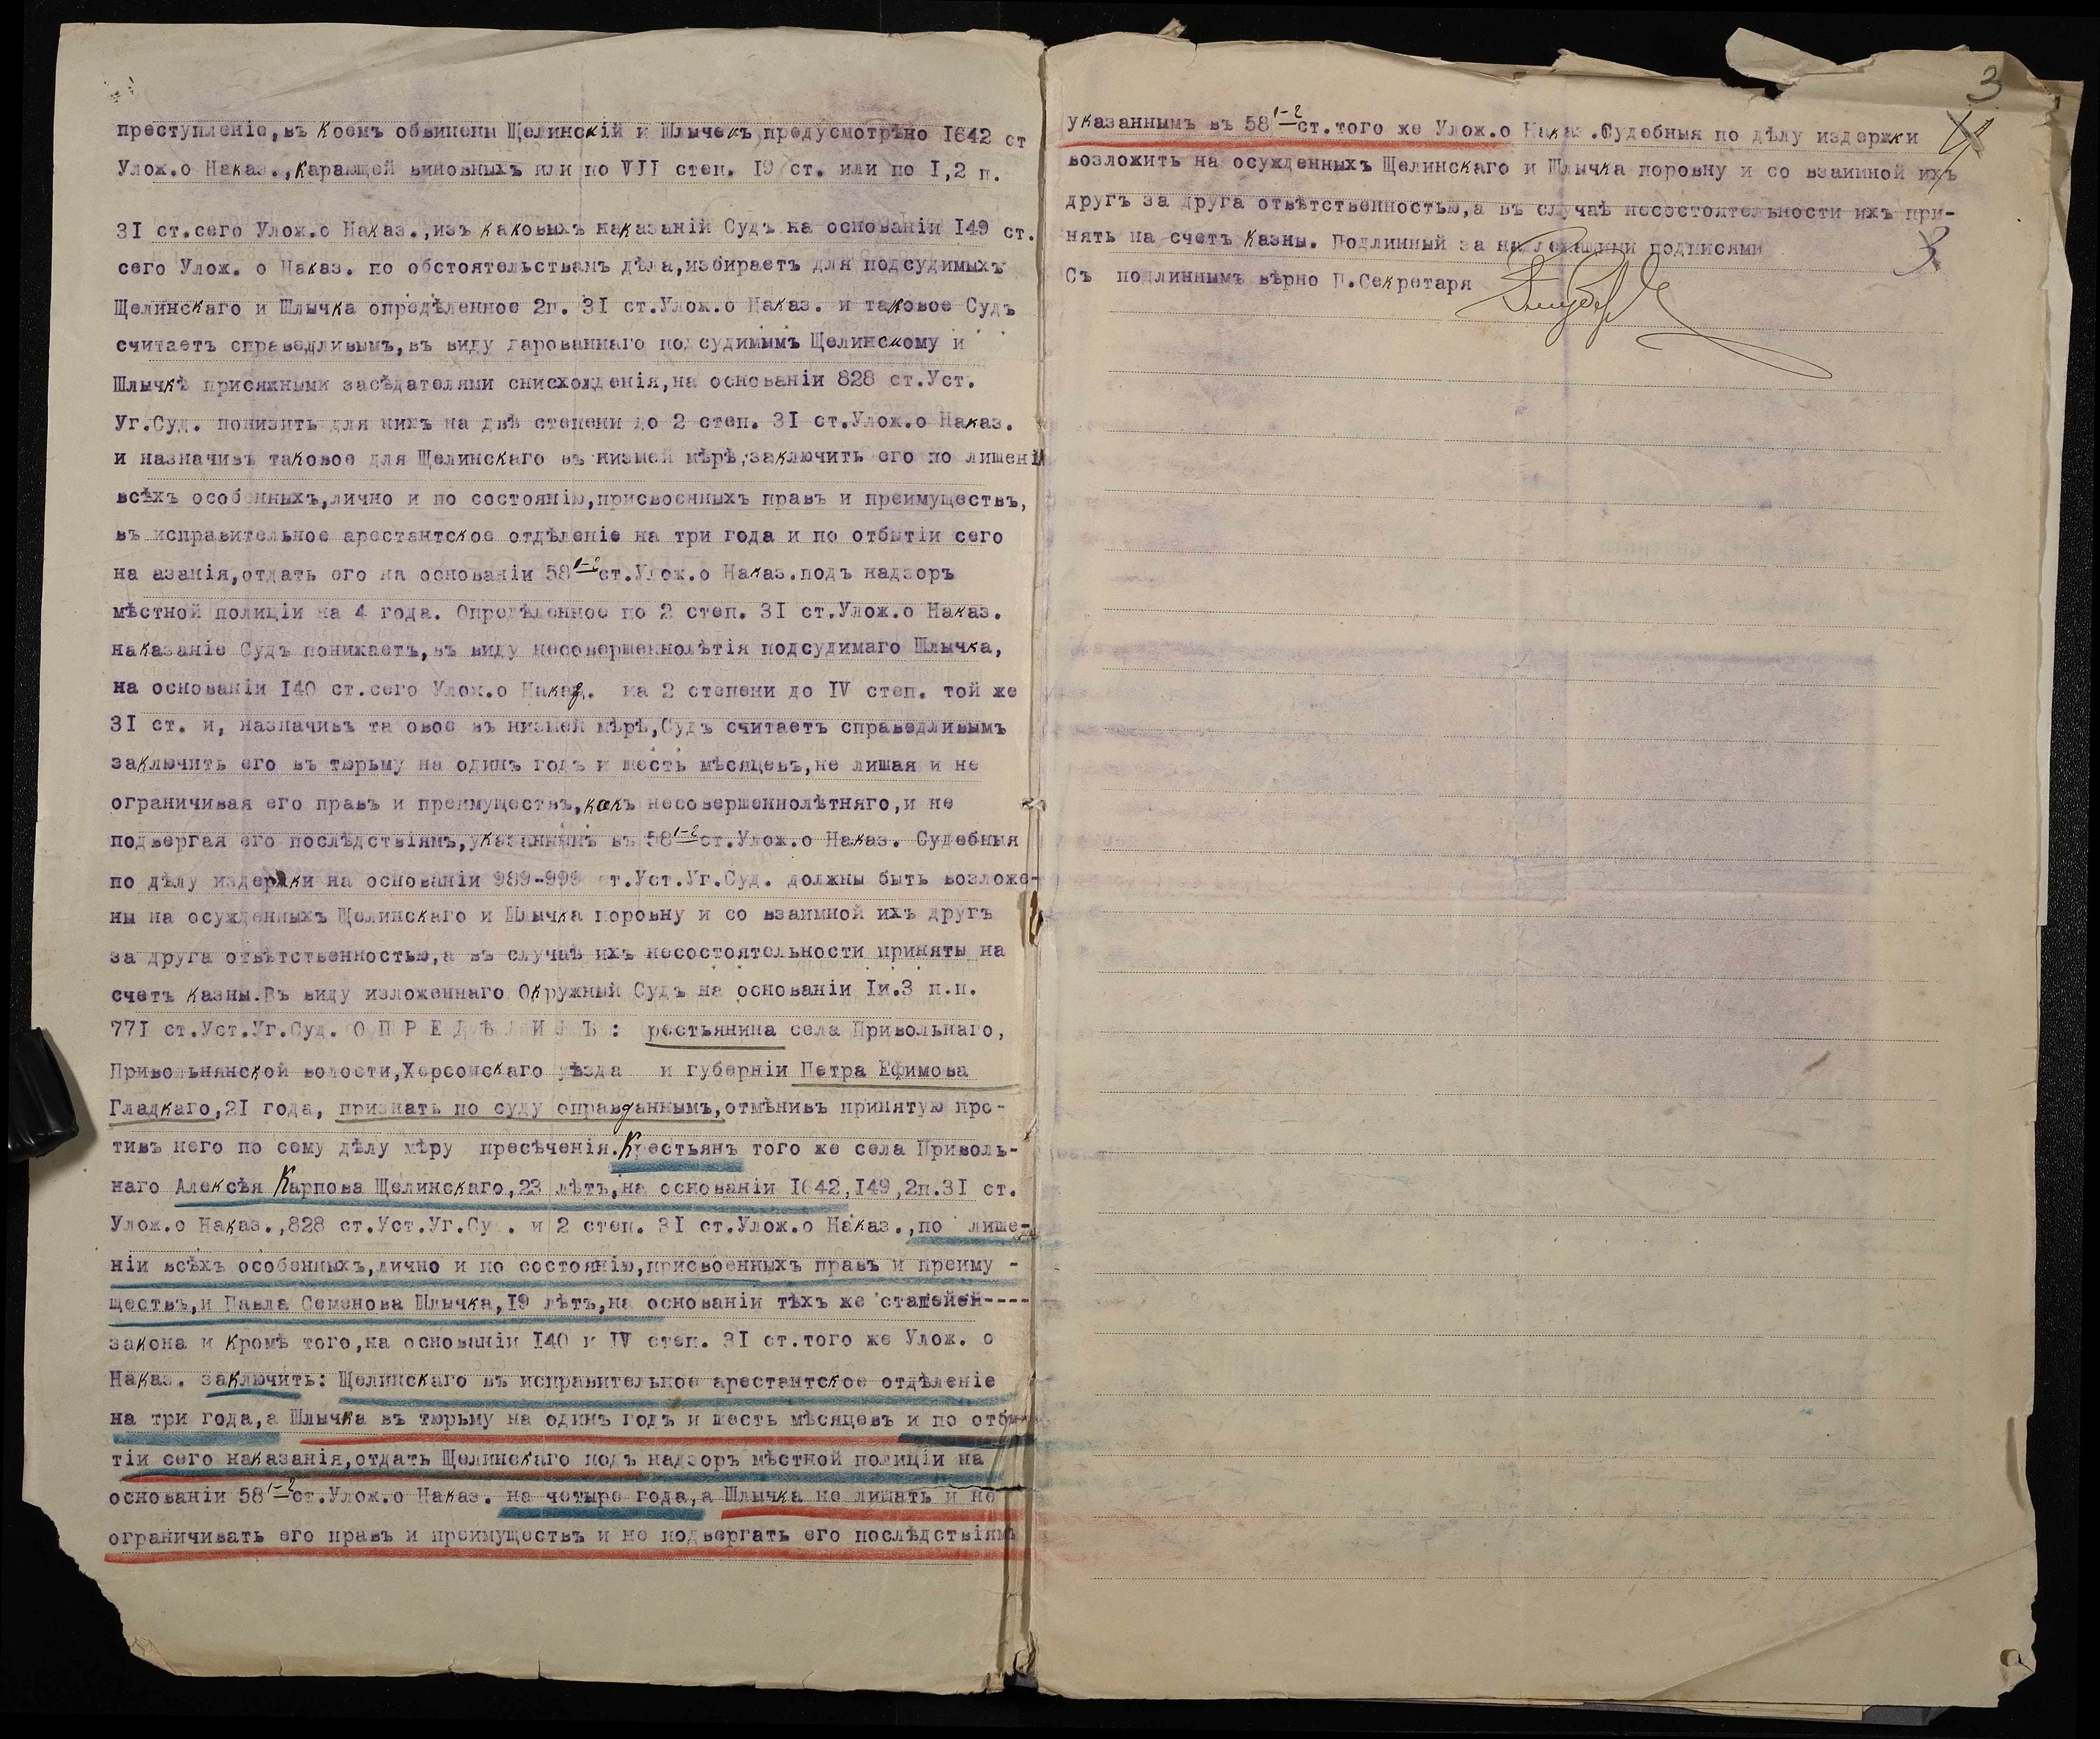 преступленіе,въ коемъ обвинены Щелинскій и Шлычекъ предусмотрѣно I642 ст
Улож.о Наказ.,карающей виновныхъ или по VII степ. I9 ст. или по I,2 п.
3I ст.сего Улож.о Наказ.,изъ каковыхъ наказаній Судъ на основаніи I49 ст.
сего Улож. о Наказ. по обстоятельствамъ дѣла,избираетъ для подсудимыхъ
Щелинскаго и Шлычка опредѣленное 2п. 3I ст.Улож.о Наказ. и таковое Судъ
считаетъ справедливымъ,въ виду дарованнаго подсудимымъ Щелинскому и
Шлычкѣ присяжными засѣдателями снисхожденія,на основаніи 828 ст.Уст.
Уг.Суд. понизить для нихъ на двѣ степени до 2 степ. 3I ст.Улож.о Наказ.
и назначивъ таковое для Щелинскаго въ низшей мѣрѣ,заключить его по лишені
всѣхъ особенныхъ,лично и по состоянію,присвоенныхъ правъ и преимуществъ,
въ исправительное арестантское отдѣленіе на три года и по отбытіи сего
на азанія,отдать его на основаніи 58 1-2 ст.Улож.о Наказ.подъ надзоръ
мѣстной полиціи на 4 года. Опредѣленное по 2 степ. 3I ст.Улож.о Наказ.
наказаніе Судъ понижаетъ,въ виду несовершеннолѣтія подсудимаго Шлычка,
на основаніи I40 ст.сего Улож.о Наказ. на 2 степени до IV степ. той же
3I ст. и, назначивъ та овое въ низшей мѣрѣ,Судъ считаетъ справедливымъ
заключить его въ тюрьму на одинъ годъ и шесть мѣсяцевъ,не лишая и не
ограничивая его правъ и преимуществъ,какъ несовершеннолѣтняго,и не
подвергая его послѣдствіямъ,указаннымъ въ 58 1-2 ст.Улож.о Наказ. Судебныя
по дѣлу издержки на основаніи 989-999 ст.Уст.Уг.Суд. должны быть возложе-
ны на осужденныхъ Щелинскаго и Шлычка поровну и со взаимной ихъ другъ
за друга отвѣтственностью,а въ случаѣ ихъ несостоятельности приняты на
счетъ казны.Въ виду изложеннаго Окружный Судъ на основаніи Iи.3 п.п.
77I ст.Уст.Уг.Суд. О П Р Е Д Ѣ Л И Л Ъ : рестьянина села Привольнаго,
Привольнянской волости,Херсонскаго уѣзда и губерніи Петра Ефимова
Гладкаго,2I года, признать по суду оправданнымъ,отмѣнивъ принятую про-
тивъ него по сему дѣлу мѣру пресѣченія.Крестьянъ того же села Приволь-
наго Алексѣя Карпова Щелинскаго,23 лѣтъ,на основаніи I642,I49,2п.3I ст.
Улож.о Наказ.,828 ст.Уст.Уг.Су . и 2 степ. 3I ст.Улож.о Наказ.,по лише-
ніи всѣхъ особенныхъ,лично и по состоянію,присвоенныхъ правъ и преиму -
ществъ,и Павла Семенова Шлычка,I9 лѣтъ,на основаніи тѣхъ же статей----
закона и кромѣ того,на основаніи I40 и IV степ. 3I ст.того же Улож. о
Наказ. заключить: Щелинскаго въ исправительное арестантское отдѣленіе
на три года,а Шлычка въ тюрьму на одинъ годъ и шесть мѣсяцевъ и по отбы-
тіи сего наказанія,отдать Щелинскаго подъ надзоръ мѣстной полиціи на
основаніи 58 1-2 ст.Улож.о Наказ. на четыре года,а Шлычка не лишать и не
ограничивать его правъ и преимуществъ и не подвергать его послѣдствіямъ
3
указаннымъ въ 58 1-2 ст.того же Улож.о Наказ.Судебныя по дѣлу издержки
возложить на осужденныхъ Щелинскаго и Шлычка поровну и со взаимной ихъ
другъ за друга отвѣтственностью,а въ случаѣ несостоятельности ихъ при-
нять на счетъ казны. Подлинный за надлежащими подписями
3
Съ подлиннымъ вѣрно П.Секретаря